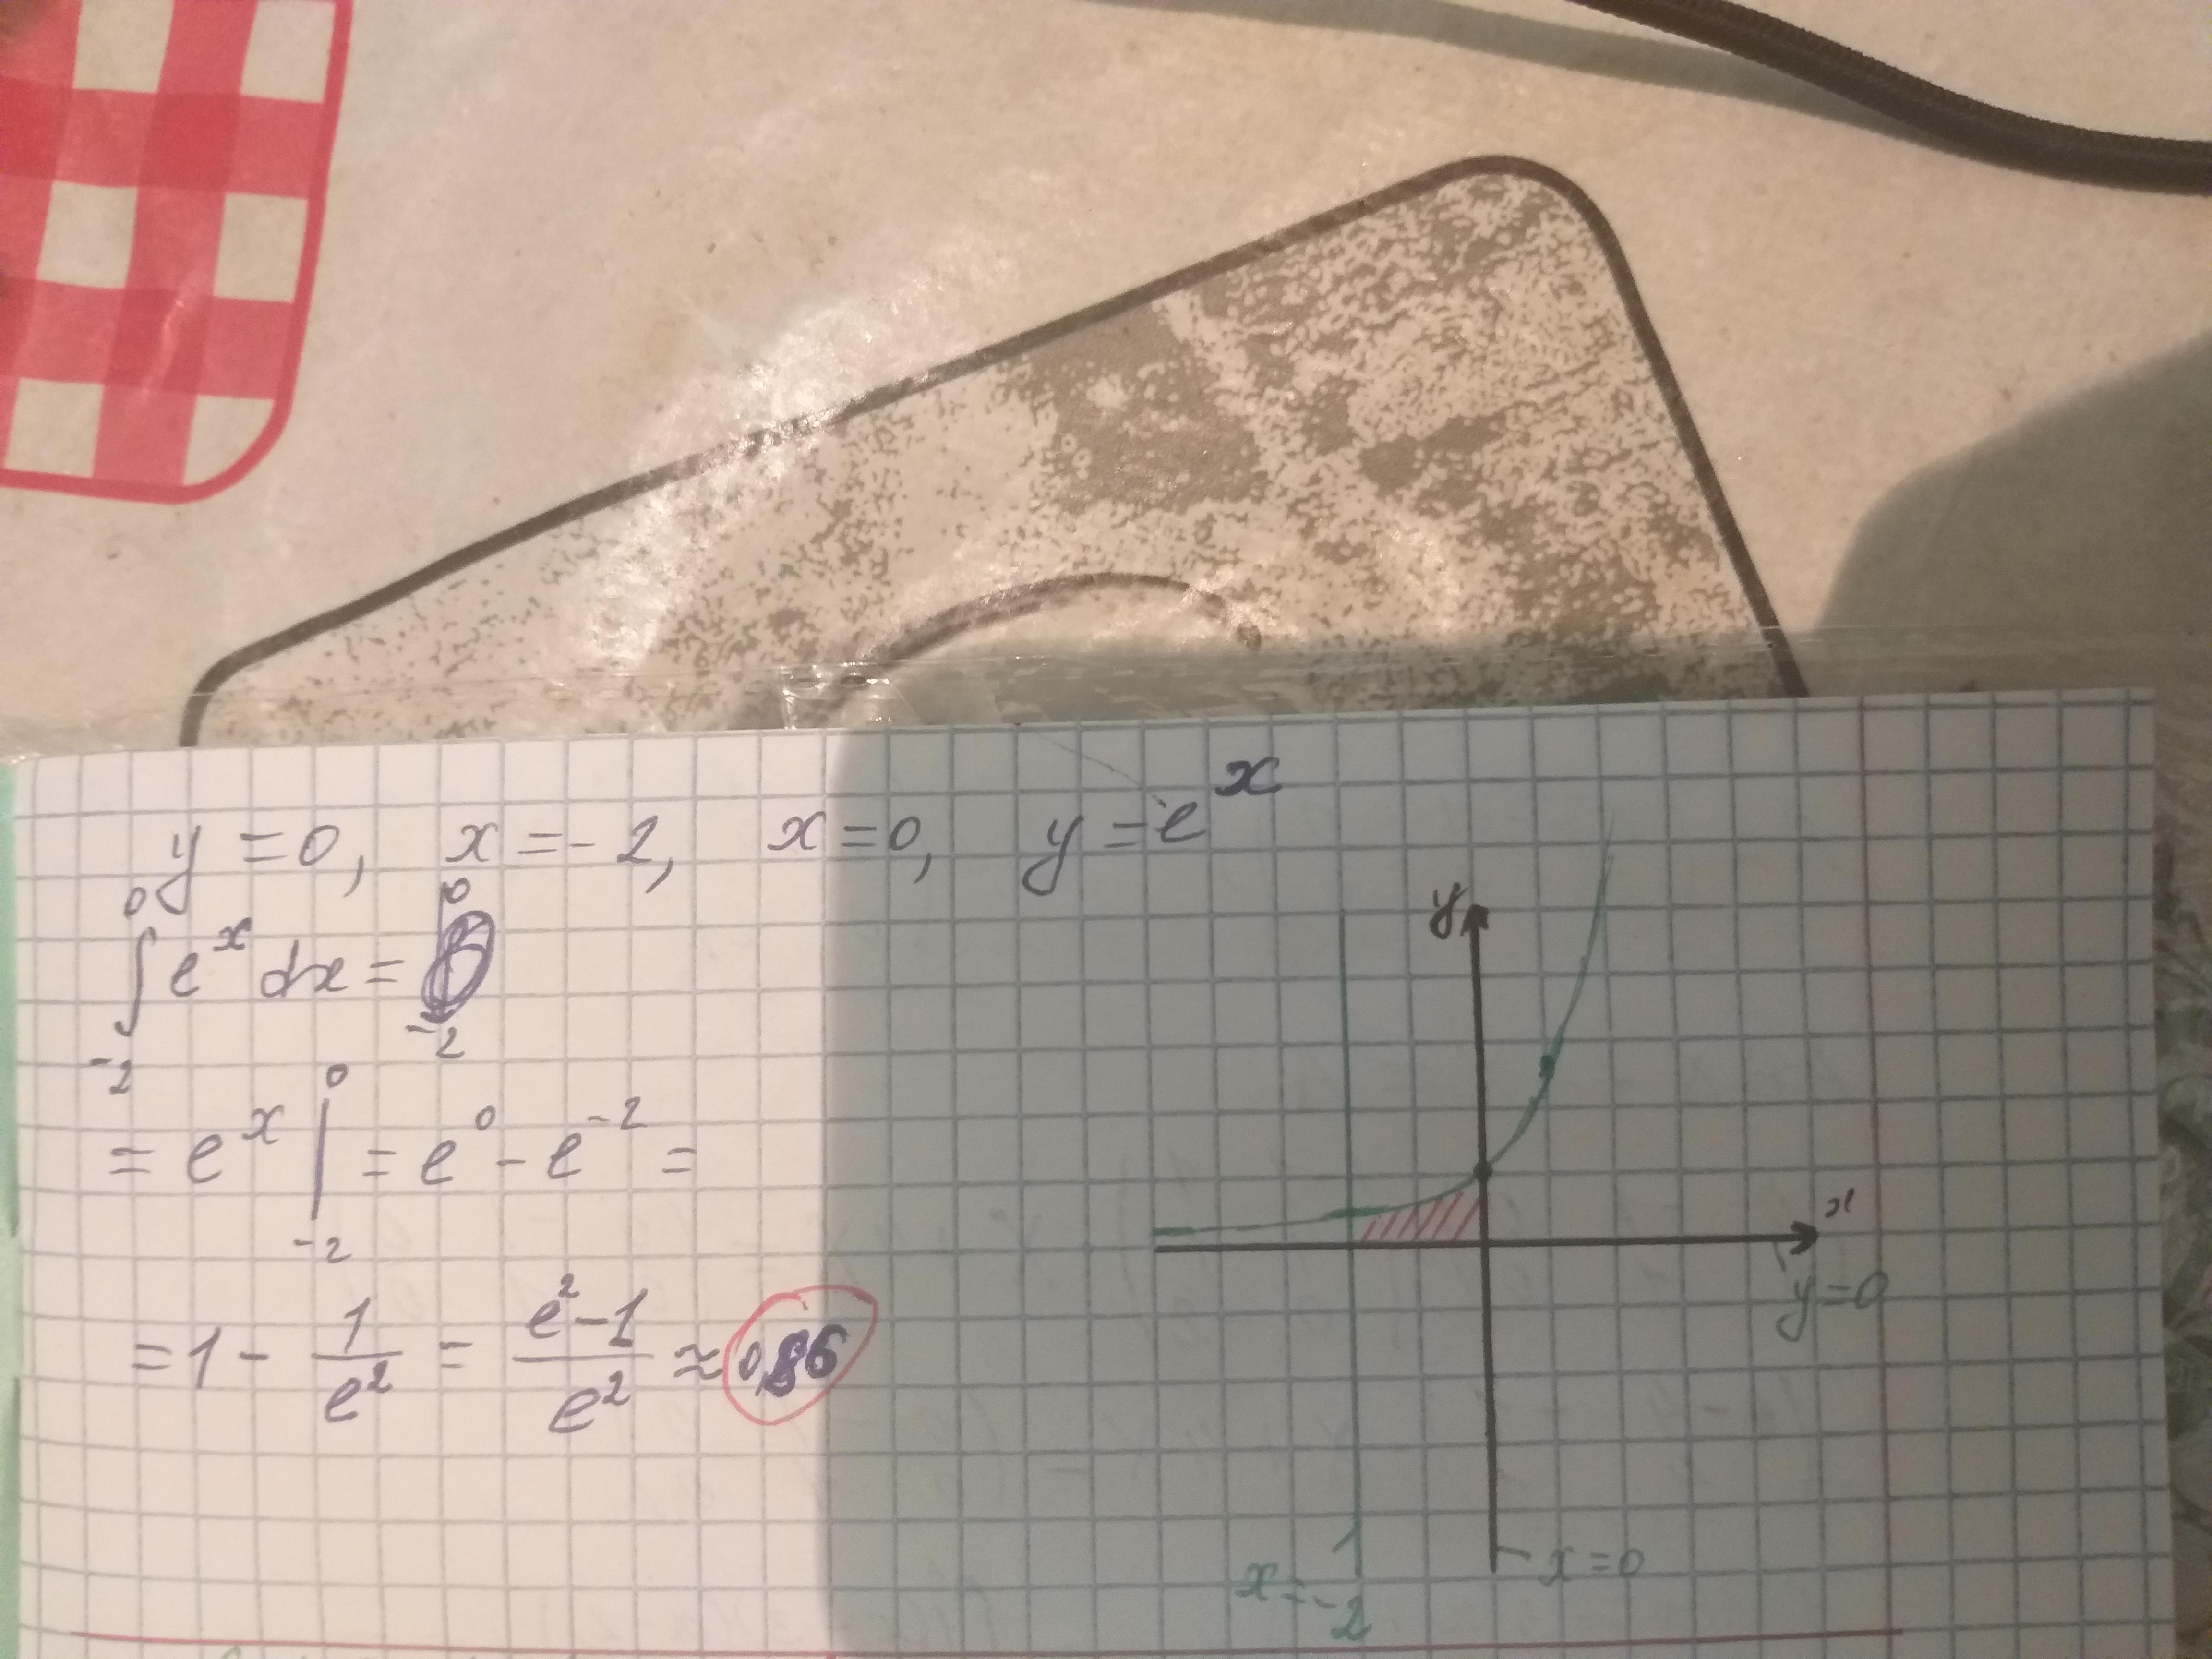 y = 0, x = -2, x = 0, y = e^x
∫_{-2}^{0} e^x dx =
= e^x |_{-2}^{0} = e^0 - e^{-2} =
= 1 - 1/e^2 = (e^2 - 1)/e^2 ≈ 0,86
y
x
y = 0
x = 0
x = -2